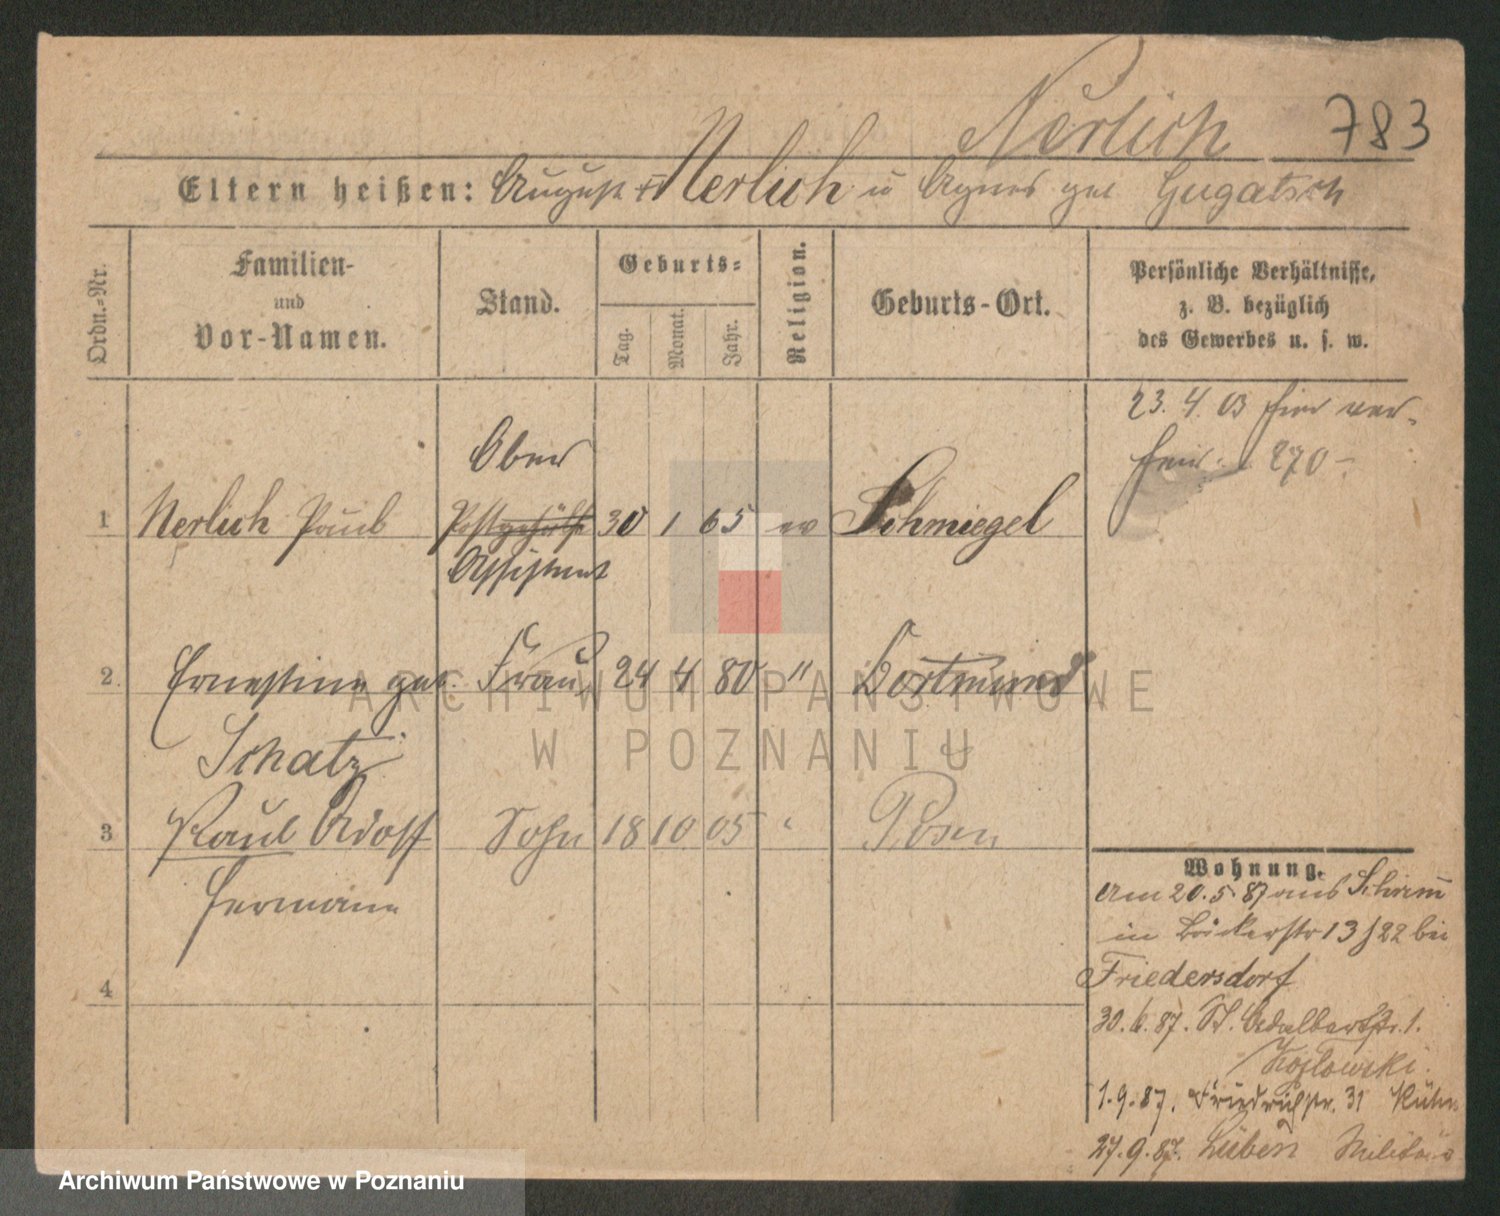 Nerlich 783
Eltern heißen: August Nerlich u Agnes geb Gugatsch
Ordn.-Nr.
Familien-
und
Vor-Namen.
Stand.
Geburts-
Tag.
Monat.
Jahr.
Religion.
Geburts-Ort.
Persönliche Verhältnisse,
z. B. bezüglich
des Gewerbes u. s. w.
23. 4. 03 hier ver-
270
Ober
1 Nerlich Paul Postgehülfe 30 1 65 ev Schmiegel
Assistent
2. Ernestine geb. Frau 24 4 80 " Dortmund
Schatz
3 Paul Adolf Sohn 18 10 05 " Posen
Hermann
4
Wohnung.
Am 20.5.87 aus Schrimm
in Bäckerstr 13 / 22 bei
Friedersdorf
30.6.87. St. Adalbertstr. 1.
Kozlowski.
1.9.87. Friedrichstr. 31 Kühn
27.9.87. Lüben Militär
ARCHIWUM PAŃSTWOWE
W POZNANIU
Archiwum Państwowe w Poznaniu